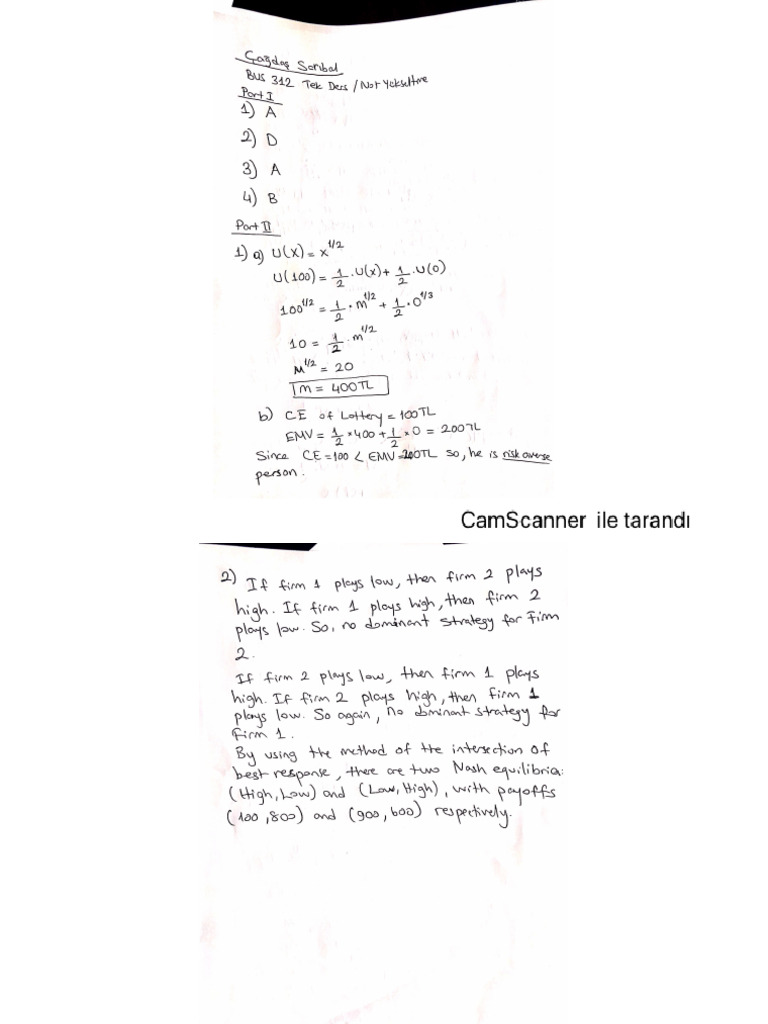 Çağdaş Sarıbal
BUS 312 Tek Ders / Not Yükseltme
Part I
1) A
2) D
3) A
4) B
Part II
1) a) U(x) = x^1/2
U(100) = 1/2 . U(x) + 1/2 . U(0)
100^1/2 = 1/2 . m^1/2 + 1/2 . 0^1/3
10 = 1/2 . m^1/2
M^1/2 = 20
m = 400TL
b) CE of Lottery = 100TL
EMV = 1/2 x 400 + 1/2 x 0 = 200TL
Since CE = 100 < EMV = 200TL so, he is risk averse
person.
CamScanner ile tarandı
2) If firm 1 plays low, then firm 2 plays
high. If firm 1 plays high, then firm 2
plays low. So, no dominant strategy for Firm
2.
If firm 2 plays low, then firm 1 plays
high. If firm 2 plays high, then firm 1
plays low. So again, no dominant strategy for
Firm 1.
By using the method of the intersection of
best response, there are two Nash equilibria:
(High, Low) and (Low, High), with payoffs
(100, 800) and (900, 600) respectively.